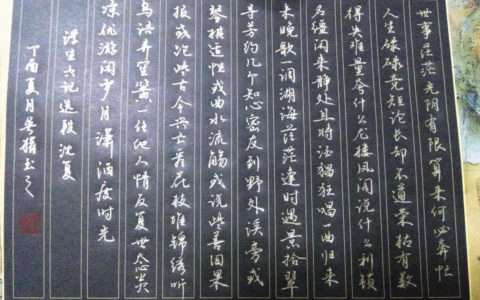 世事茫茫光阴有限算来何必奔忙
人生碌碌竞短论长却不道荣枯有数
得失难量看什么龙楼凤阁说什么利锁
名缰闲来静处且将诗酒猖狂唱一曲归来
未晚歌一调湖海茫茫逢时遇景拾翠
寻芳约几个知心密友到野外溪旁或
琴棋适性或曲水流觞或说些善因果
报或论些古今兴亡看花枝堆锦绣听
鸟语弄笙簧一任他人情反复世态炎
凉优游闲岁月潇洒度时光
浮生六记选段沈复
丁酉夏月书之